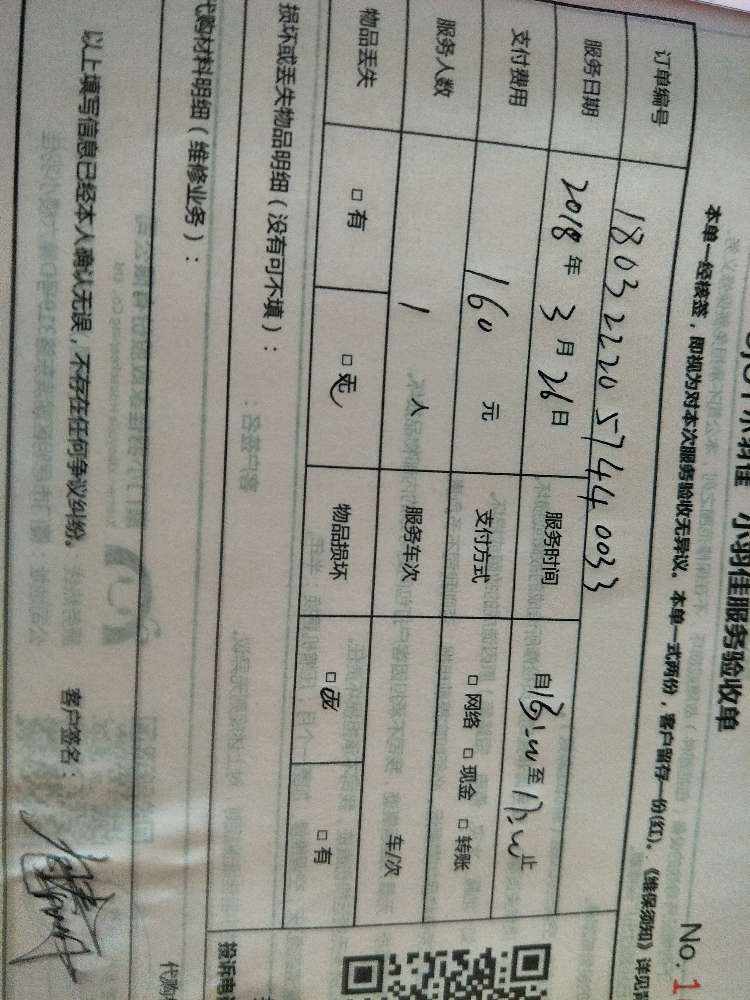 小羽佳 小羽佳服务验收单
No.1
本单一经核签，即视为对本次服务验收无异议。本单一式两份，客户留存一份(红)。《维保须知》详见背
订单编号 1803222057440033
服务日期 2018年3月26日 服务时间 自 至 止
支付费用 160 元 支付方式 □网络 □现金 □转账
服务人数 1 人 服务车次 车/次
物品丢失 □有 □无 物品损坏 □无 □有
损坏或丢失物品明细（没有可不填）：
投诉电
代购材料明细（维修业务）：
代购
以上填写信息已经本人确认无误，不存在任何争议纠纷。 客户签名：